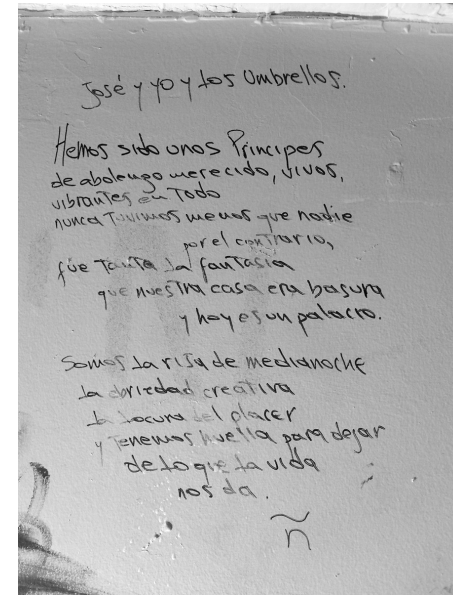 José y yo y los Umbrellos.
Hemos sido unos Principes
de abolengo merecido, vivos,
vibrantes en Todo
nunca Tuvimos menos que nadie
por el contrario,
fue Tanta la fantasia
que nuestra casa era basura
y hoy es un palacio.
Somos la risa de medianoche
la ebriedad creativa
la locura del placer
y Tenemos huella para dejar
de lo que la vida
nos da.
ñ